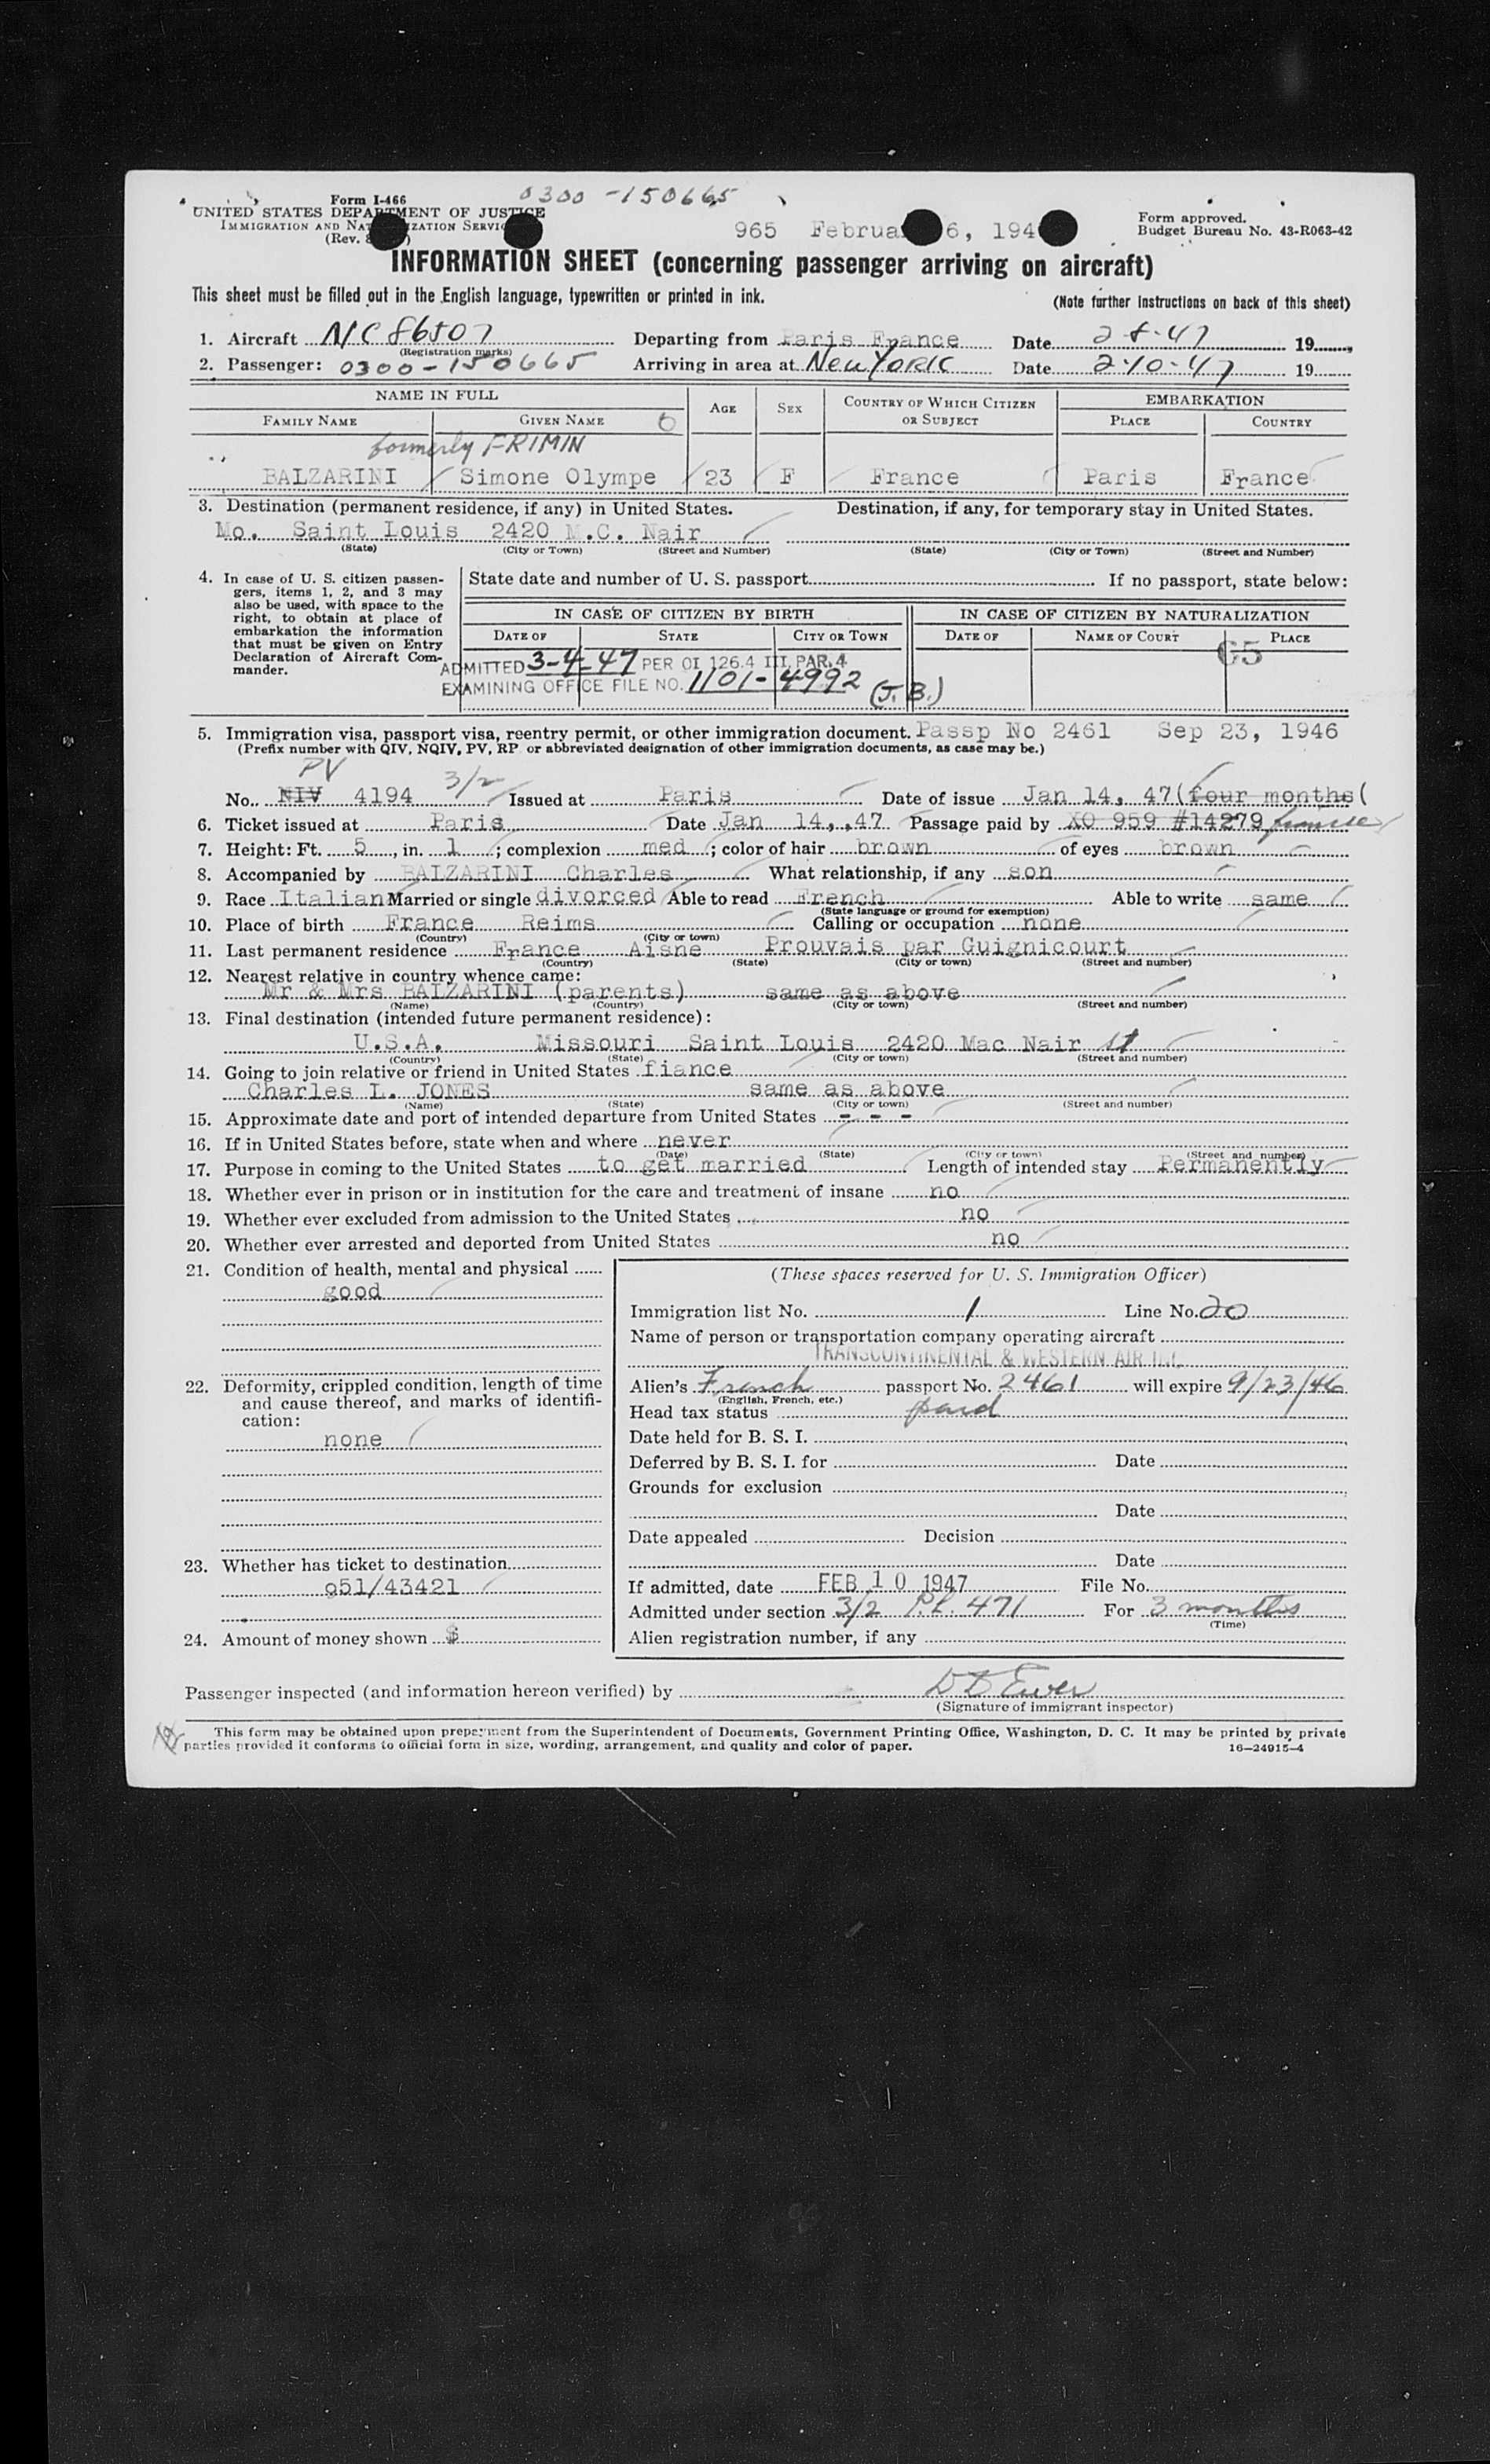 Form I-466
0300-150665
UNITED STATES DEPARTMENT OF JUSTICE
IMMIGRATION AND NATURALIZATION SERVICE
(Rev.
965 February 6, 194
Form approved.
Budget Bureau No. 43-R063-42
INFORMATION SHEET (concerning passenger arriving on aircraft)
This sheet must be filled out in the English language, typewritten or printed in ink.
(Note further instructions on back of this sheet)
1. Aircraft NC 86507 Departing from Paris France Date 2-8-47 19
(Registration marks)
2. Passenger: 0300-150665 Arriving in area at New York Date 2-10-47 19
NAME IN FULL AGE SEX COUNTRY OF WHICH CITIZEN OR SUBJECT EMBARKATION
FAMILY NAME GIVEN NAME PLACE COUNTRY
formerly FRIMIN
BALZARINI Simone Olympe 23 F France Paris France
3. Destination (permanent residence, if any) in United States. Destination, if any, for temporary stay in United States.
Mo. Saint Louis 2420 M.C. Nair
(State) (City or Town) (Street and Number) (State) (City or Town) (Street and Number)
4. In case of U. S. citizen passengers, items 1, 2, and 3 may also be used, with space to the right, to obtain at place of embarkation the information that must be given on Entry Declaration of Aircraft Commander.
State date and number of U. S. passport If no passport, state below:
IN CASE OF CITIZEN BY BIRTH IN CASE OF CITIZEN BY NATURALIZATION
DATE OF STATE CITY OR TOWN DATE OF NAME OF COURT PLACE
65
ADMITTED 3-4-47 PER OI 126.4 III PAR. 4
EXAMINING OFFICE FILE NO. 1101-4992 (J.B.)
5. Immigration visa, passport visa, reentry permit, or other immigration document. Passp No 2461 Sep 23, 1946
(Prefix number with QIV, NQIV, PV, RP or abbreviated designation of other immigration documents, as case may be.)
PV 3/2
No. NIV 4194 Issued at Paris Date of issue Jan 14, 47(four months(
6. Ticket issued at Paris Date Jan 14,,47 Passage paid by XO 959 #14279
7. Height: Ft. 5, in. 1; complexion med; color of hair brown of eyes brown
8. Accompanied by BALZARINI Charles What relationship, if any son
9. Race Italian Married or single divorced Able to read French Able to write same
(State language or ground for exemption)
10. Place of birth France Reims Calling or occupation none
(Country) (City or town)
11. Last permanent residence France Aisne Prouvais par Guignicourt
(Country) (State) (City or town) (Street and number)
12. Nearest relative in country whence came:
Mr & Mrs BALZARINI (parents) same as above
(Name) (Country) (City or town) (Street and number)
13. Final destination (intended future permanent residence):
U.S.A. Missouri Saint Louis 2420 Mac Nair St
(Country) (State) (City or town) (Street and number)
14. Going to join relative or friend in United States fiance
Charles L. JONES same as above
(Name) (State) (City or town) (Street and number)
15. Approximate date and port of intended departure from United States - - -
16. If in United States before, state when and where never
(Date) (State) (City or town) (Street and number)
17. Purpose in coming to the United States to get married Length of intended stay Permanently
18. Whether ever in prison or in institution for the care and treatment of insane no
19. Whether ever excluded from admission to the United States no
20. Whether ever arrested and deported from United States no
21. Condition of health, mental and physical
good
22. Deformity, crippled condition, length of time and cause thereof, and marks of identification:
none
23. Whether has ticket to destination
o51/43421
24. Amount of money shown $
(These spaces reserved for U. S. Immigration Officer)
Immigration list No. 1 Line No. 20
Name of person or transportation company operating aircraft
TRANSCONTINENTAL & WESTERN AIR INC
Alien's French passport No. 2461 will expire 9/23/46
(English, French, etc.)
Head tax status paid
Date held for B. S. I.
Deferred by B. S. I. for Date
Grounds for exclusion
Date
Date appealed Decision
Date
If admitted, date FEB 10 1947 File No.
Admitted under section 3/2 P.L. 471 For 3 months
(Time)
Alien registration number, if any
Passenger inspected (and information hereon verified) by
(Signature of immigrant inspector)
This form may be obtained upon prepayment from the Superintendent of Documents, Government Printing Office, Washington, D. C. It may be printed by private
parties provided it conforms to official form in size, wording, arrangement, and quality and color of paper. 16—24915-4